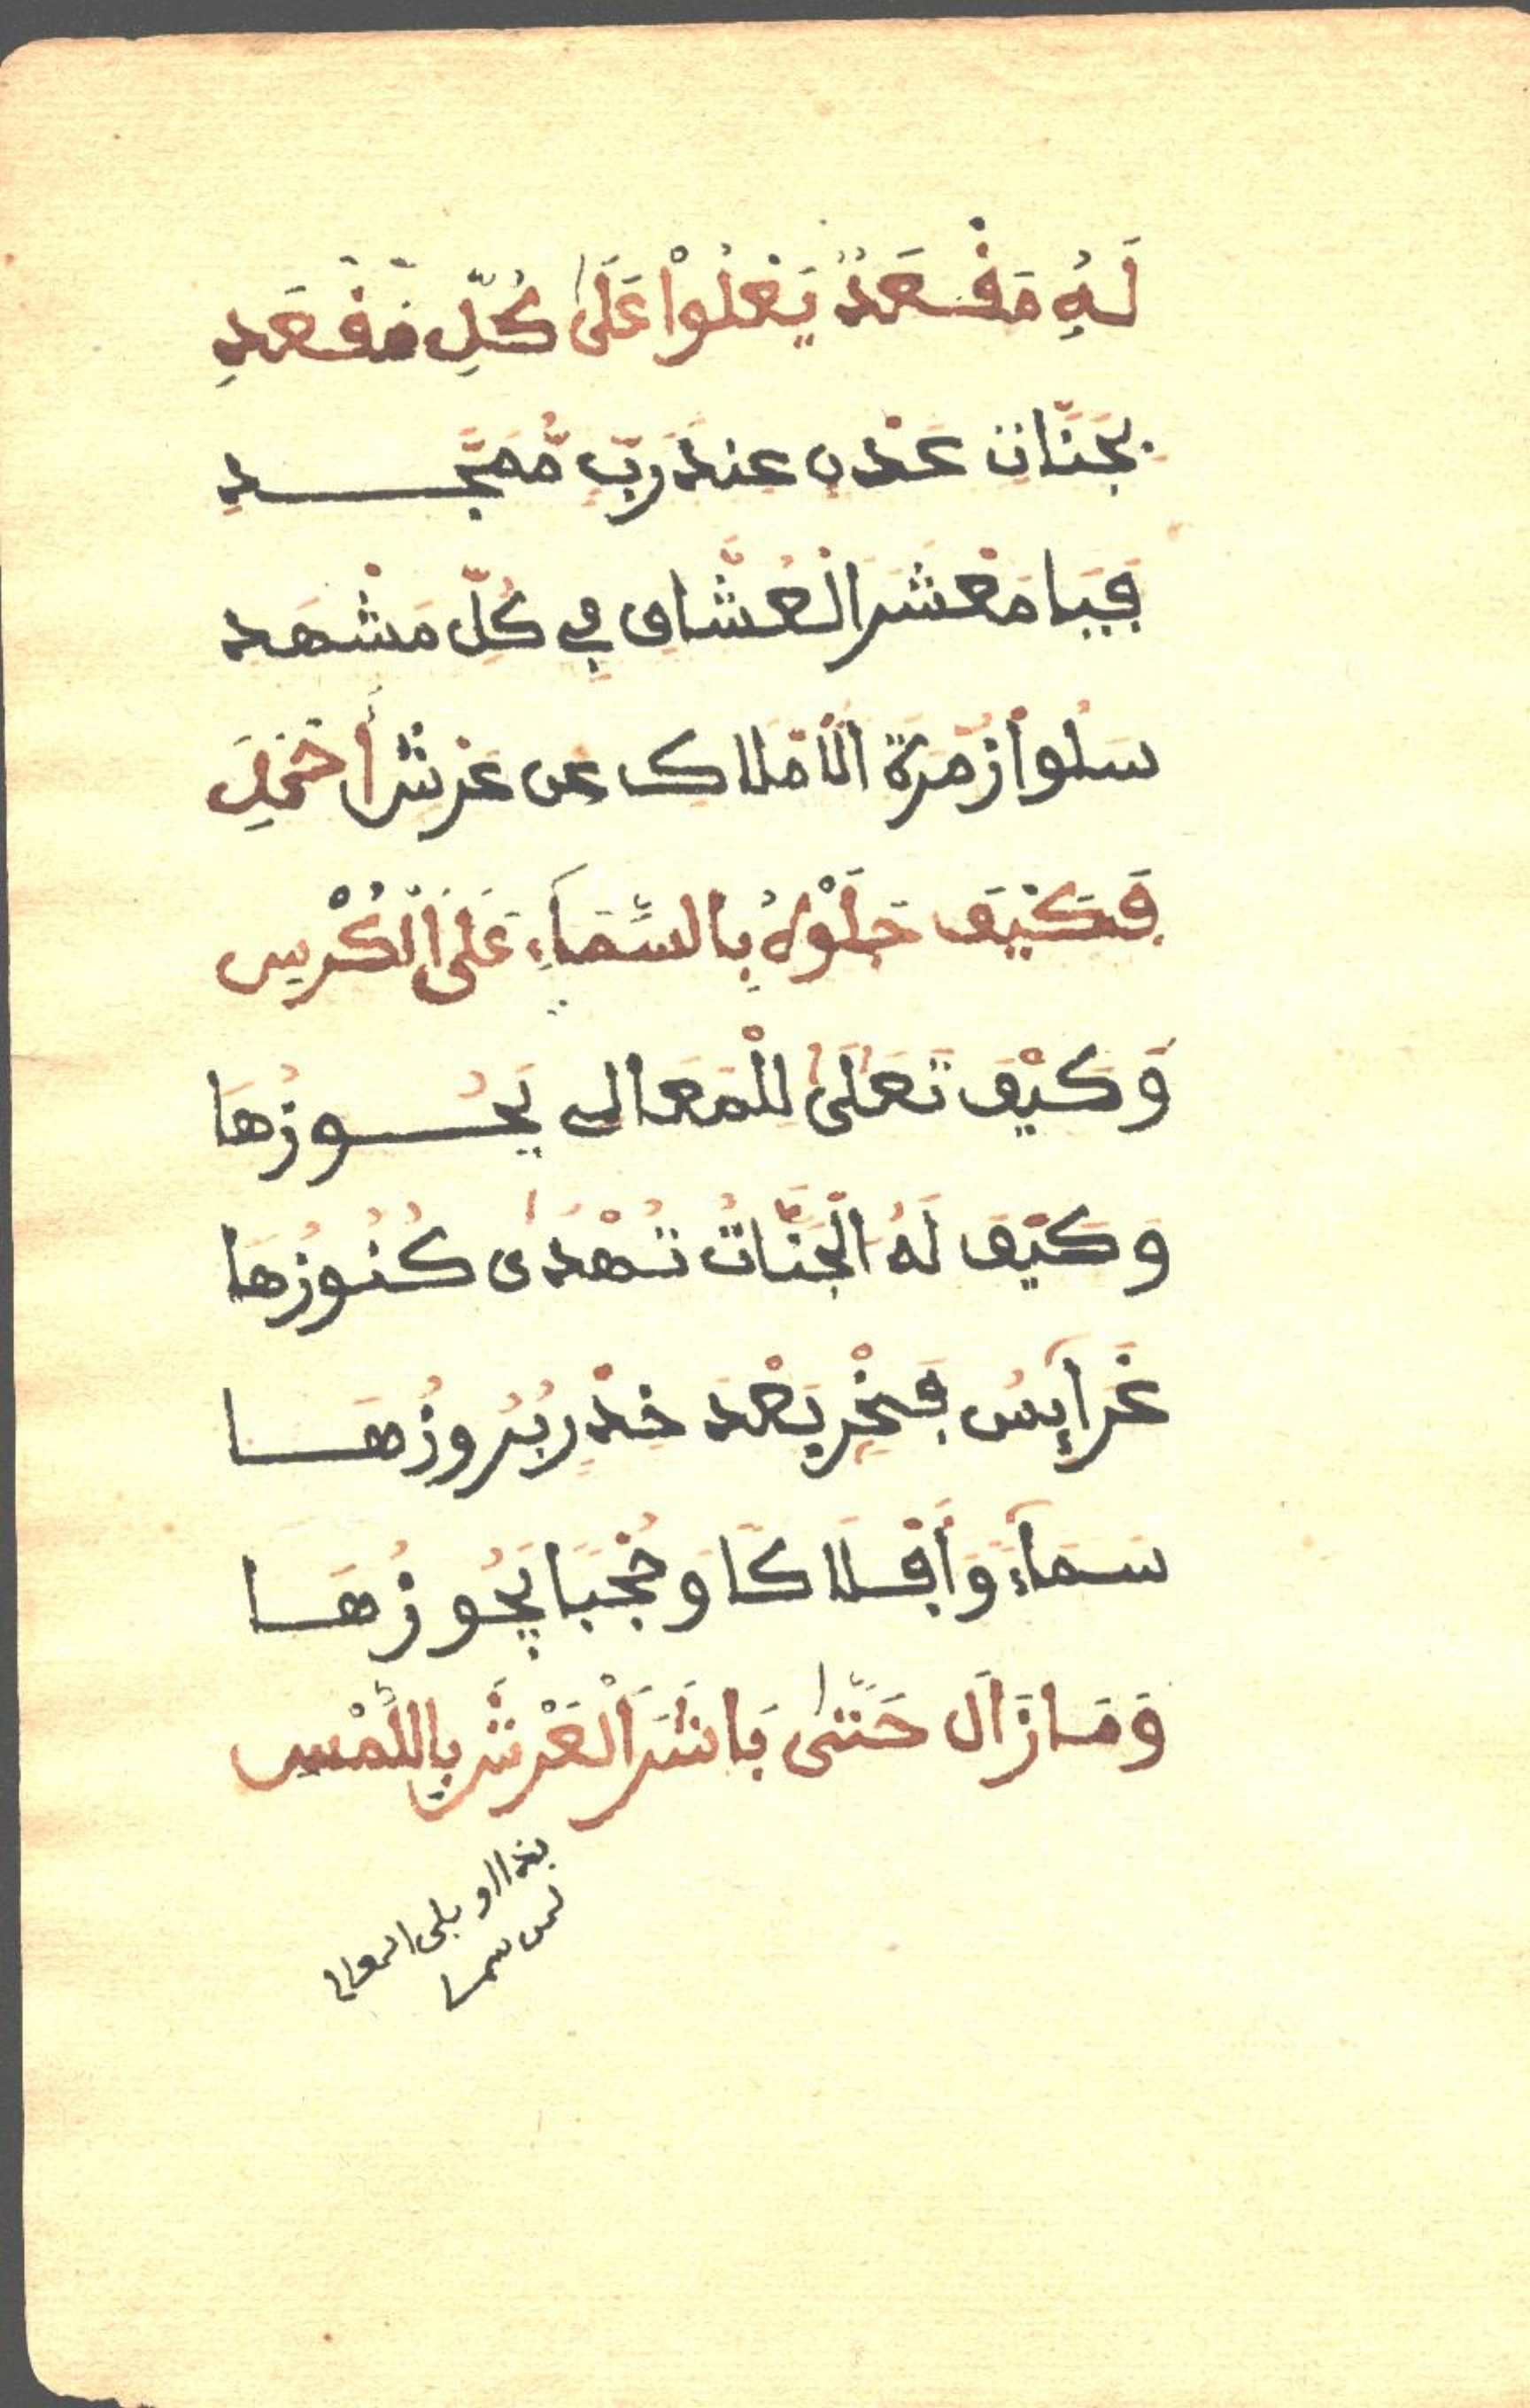 لَهُ مَقْعَدٌ يَعْلُوْا عَلَىٰ كُلِّ مَقْعَدِ
بِجَنَّاتِ عَدْنٍ عِنْدَ رَبٍّ مُّمَجَّدِ
فَيَا مَعْشَرَ الْعُشَّاقِ فِي كُلِّ مَشْهَد
سَلُوا زُمْرَةَ الْأَمْلَاكِ عَن عَرْشِ أَحْمَدِ
فَكَيْفَ جَلَوْهُ بِالسَّمَآءِ عَلَى الْكُرْسِ
وَكَيْفَ تَعَلَّىٰ لِلْمَعَالِي يَحُوزُهَا
وَكَيْفَ لَهُ الْجَنَّاتُ تُهْدَىٰ كُنُوزُهَا
عَرَآيِسُ فَخْرٍ بَعْدَ خِدْرٍ بُرُوزُهَا
سَمَآءً وَأَفْلَاكًا وَحُجْبًا يَجُوزُهَا
وَمَا زَالَ حَتَّىٰ بَاشَرَ الْعَرْشَ بِاللَّمْسِ